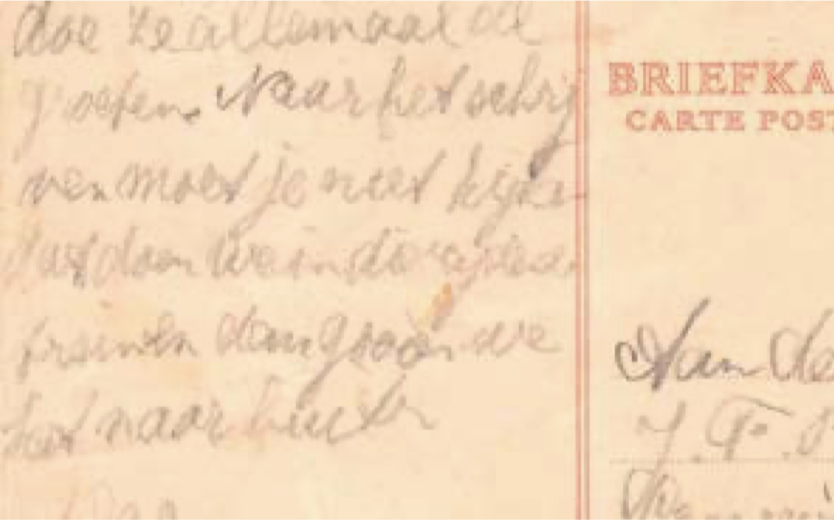 doe ze allemaal de
groeten. Naar het schrij
ven moet je niet kijke
dat doen we in de rijdend
treinen dan gooien we
het naar buiten
Dag
BRIEFKA
CARTE POST
Aan de
J. F.